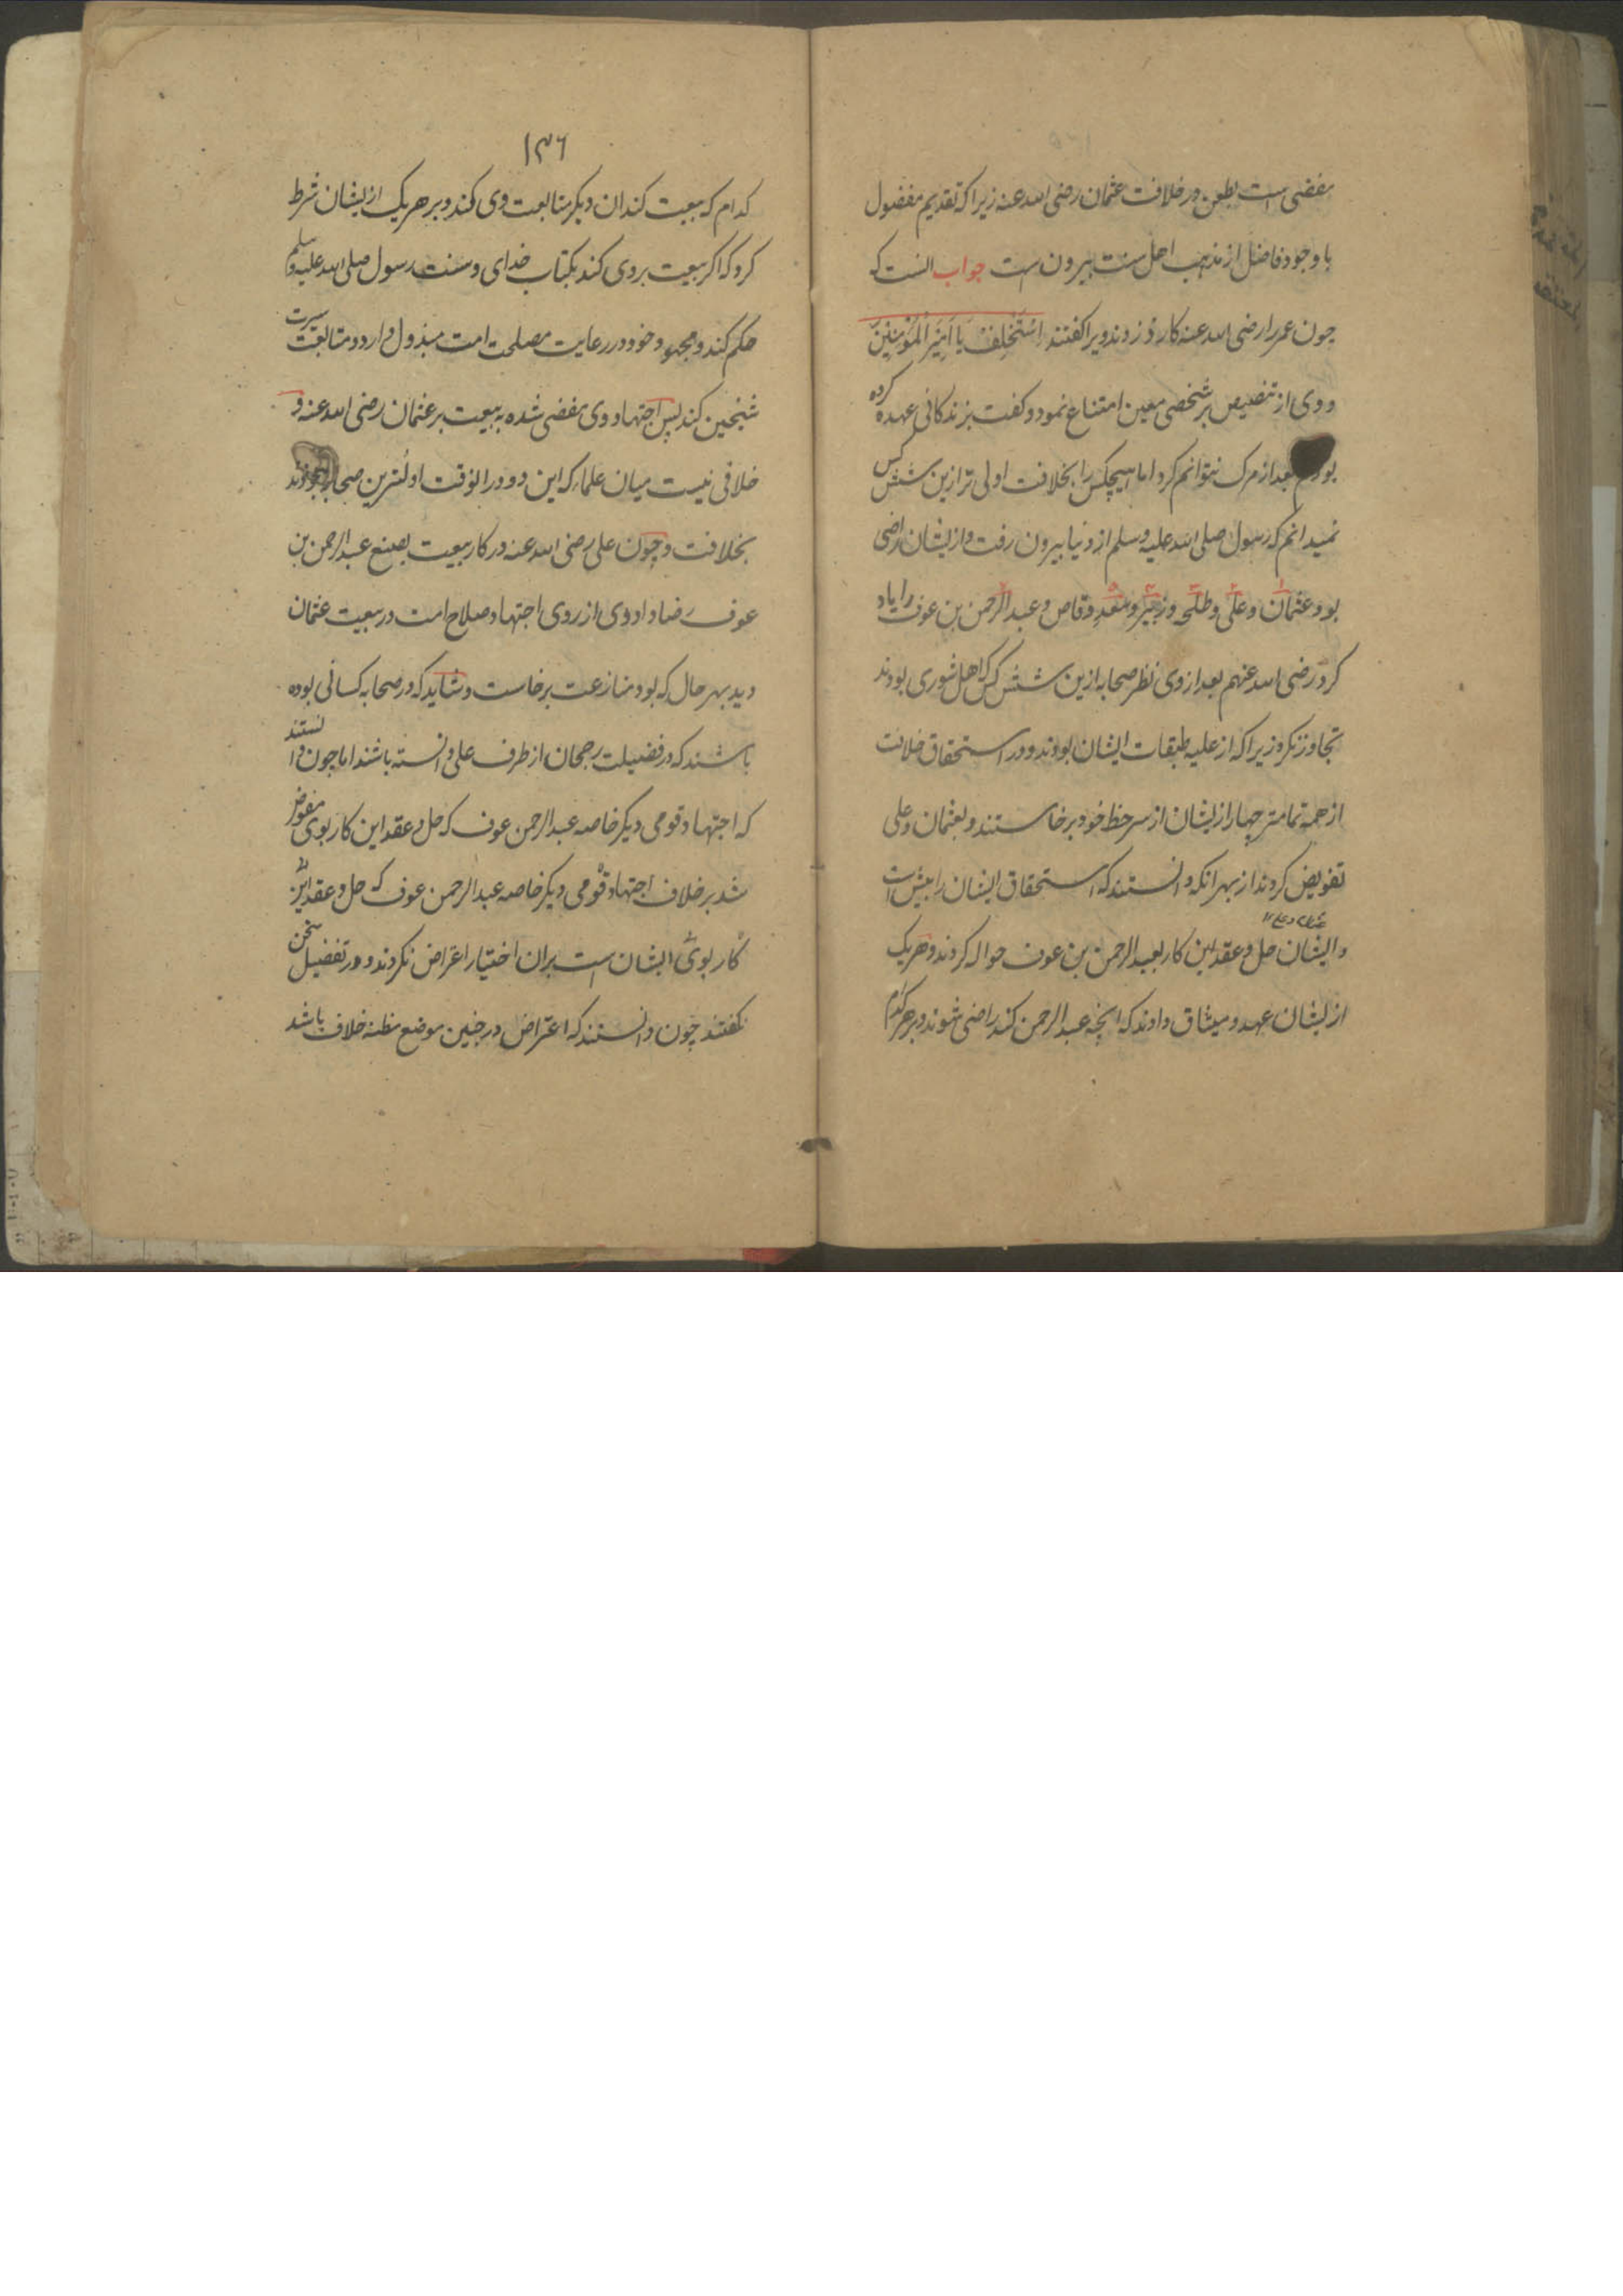 مفضی است بطعن در خلافت عثمان رضی الله عنه زیرا که تقدیم مفضول
با وجود فاضل از مذهب اهل سنت بیرون است جواب انست که
چون عمر را رضی الله عنه کارد زدند ویرا کفتند اسْتَخْلِفْ یَا اَمِیْرَ الْمُؤْمِنِیْنَ
و وی از تنصیص بر شخصی معین امتناع نمود و کفت بزندکانی عهده کرده
بودم بعد از مرک نتوانم کرد اما هیچکس را بخلافت اولی تر ازین شش کس
نمیدانم که رسول صلی الله علیه وسلم از دنیا بیرون رفت و از ایشان راضی
بود و عثمان و علی و طلحه و زبیر و سعد وقاص و عبد الرحمن بن عوف را یاد
کرد رضی الله عنهم بعد از وی نظر صحابه ازین شش کس که اهل شوری بودند
تجاوز نکرد زیرا که از علیه طبقات ایشان بودند و در استحقاق خلافت
از همه تمامتر چهار از ایشان از سر حظ خود برخاستند و بعثمان و علی
تفویض کردند از بهر انکه دانستند که استحقاق ایشان را بیش است
عثمان و علی ۱۲
و ایشان حل و عقد این کار بعبد الرحمن بن عوف حواله کردند و هر یک
از ایشان عهد و میثاق دادند که انچه عبد الرحمن کند راضی شوند و بر هر کدام
۱۳۶
کدام که بیعت کند ان دیکر متابعت وی کند و بر هر یک از ایشان شرط
کرد که اکر بیعت بر وی کند بکتاب خدای و سنت رسول صلی الله علیه و سلم
حکم کند و مجهود خود در رعایت مصلحت امت مبذول دارد و متابعت سیرت
شیخین کند پس اجتهاد وی مفضی شده به بیعت بر عثمان رضی الله عنه و
خلافی نیست میان علما که این دو در انوقت اولترین صحابه بودند
بخلافت و چون علی رضی الله عنه در کار بیعت بصنع عبد الرحمن بن
عوف رضا داد وی از روی اجتهاد صلاح امت در بیعت عثمان
دید بهر حال که بود منازعت برخاست و شاید که در صحابه کسانی بوده
باشند که در فضیلت رجحان از طرف علی دانسته باشند اما چون دانستند
که اجتهاد قومی دیکر خاصه عبد الرحمن عوف که حل و عقد این کار بوی مفوض
شد بر خلاف اجتهاد قومی دیکر خاصه عبد الرحمن عوف که حل و عقد این
کار بوی ایشان است بران اختیار اعراض نکردند و در تفضیل سخن
نکفتند چون دانستند که اعتراض در چنین موضع مظنه خلاف باشد